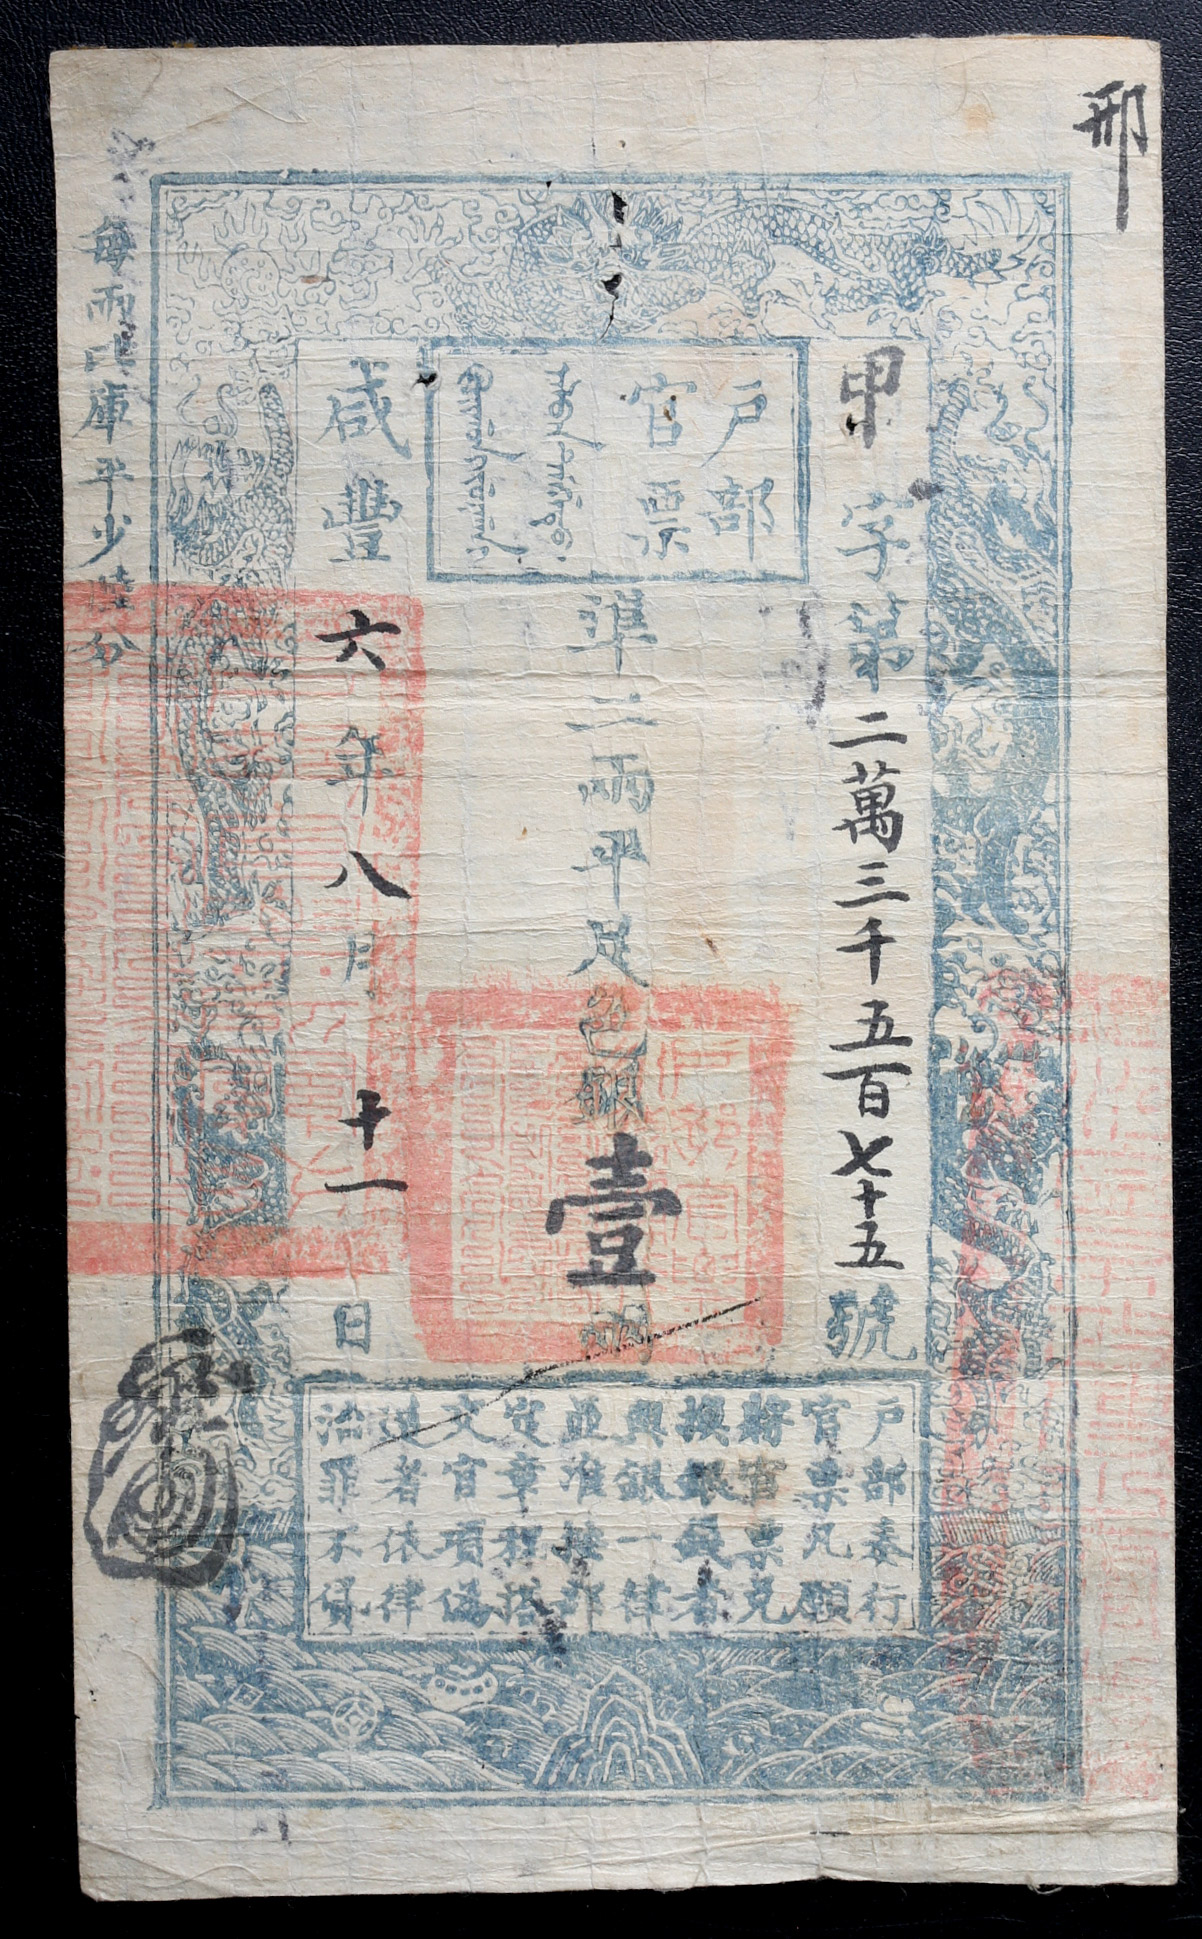 邢
甲字第二萬三千五百七十五號
戶部
官票
準二兩平足色銀壹兩
咸豐六年八月十一日
每兩比庫平少陸分
戶部奏行
官票凡願
將官票兌
換銀錢者
與銀一律
並准按部
定章程搭
交官項偽
造者依律
治罪不貸